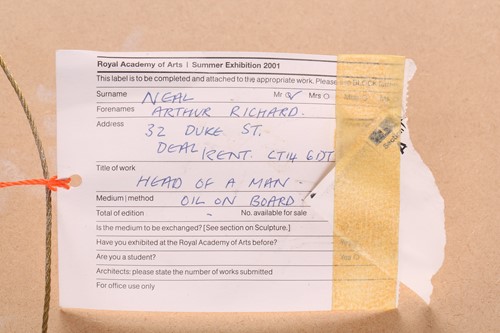 Royal Academy of Arts | Summer Exhibition 2001
This label is to be completed and attached to the appropriate work. Please
Surname NEAL Mr ✓ Mrs
Forenames ARTHUR RICHARD.
Address 32 DUKE ST.
DEAL, KENT. CT14 6DT
Title of work
HEAD OF A MAN
Medium | method OIL ON BOARD
Total of edition - No. available for sale
Is the medium to be exchanged? [See section on Sculpture.]
Have you exhibited at the Royal Academy of Arts before?
Are you a student? Yes
Architects: please state the number of works submitted
For office use only